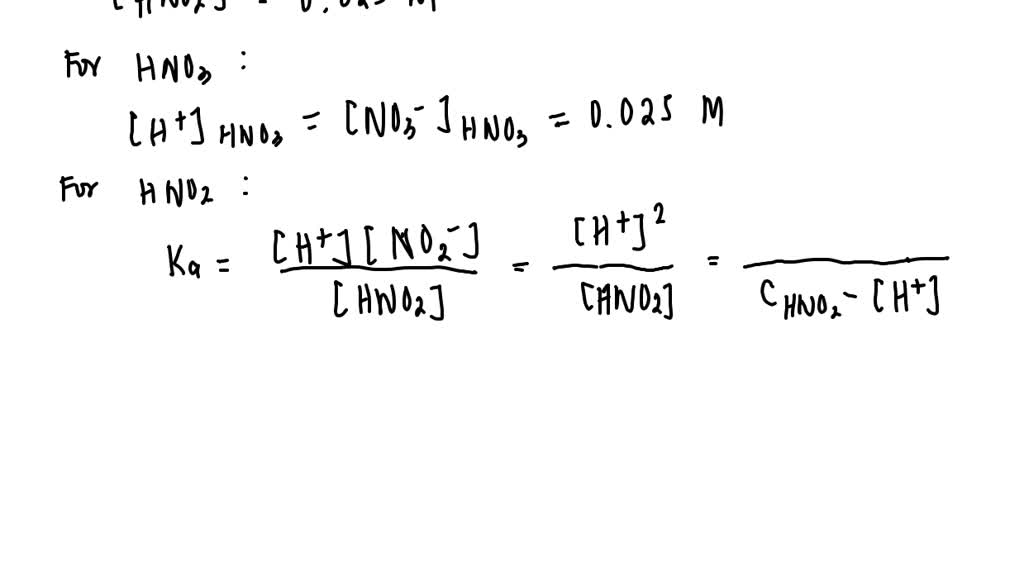 [HNO2] = 0.025 M
For HNO3 :
[H+] HNO3 = [NO3-] HNO3 = 0.025 M
For HNO2 :
Ka = [H+][NO2-] / [HNO2] = [H+]2 / [HNO2] = / CHNO2 - [H+]